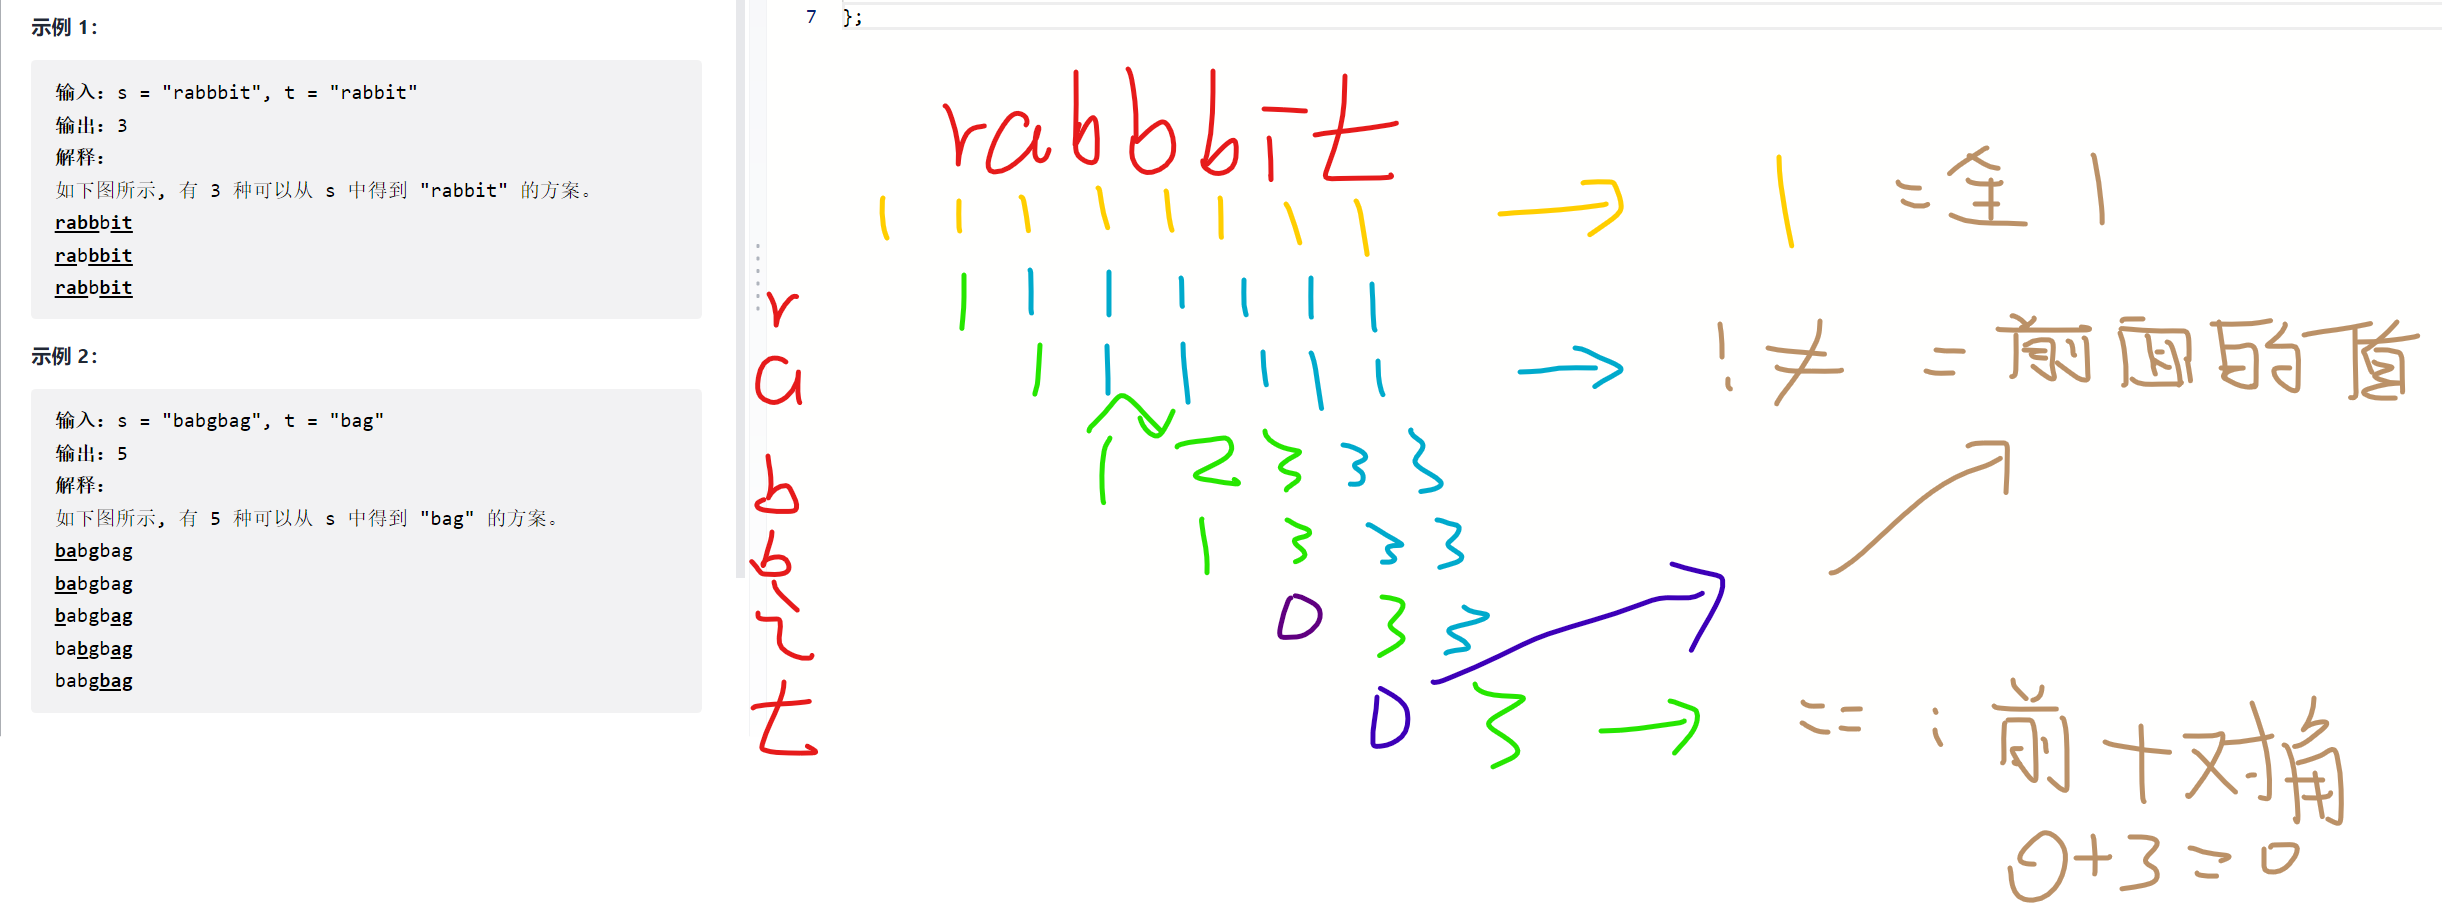 示例 1:
输入: s = "rabbbit", t = "rabbit"
输出: 3
解释:
如下图所示, 有 3 种可以从 s 中得到 "rabbit" 的方案。
rabbbit
rabbbit
rabbbit
示例 2:
输入: s = "babgbag", t = "bag"
输出: 5
解释:
如下图所示, 有 5 种可以从 s 中得到 "bag" 的方案。
babgbag
babgbag
babgbag
babgbag
babgbag
7 };
rabbbit
1 1 1 1 1 1 1 1 → 1 =全 1
r 1 1 1 1 1 1 1
a 1 1 1 1 1 1 → ! ≠ =前面的值
b 1 2 3 3 3
b 1 3 3 3
i 0 3 3
t 0 3 → == : 前十对角
0+3=0